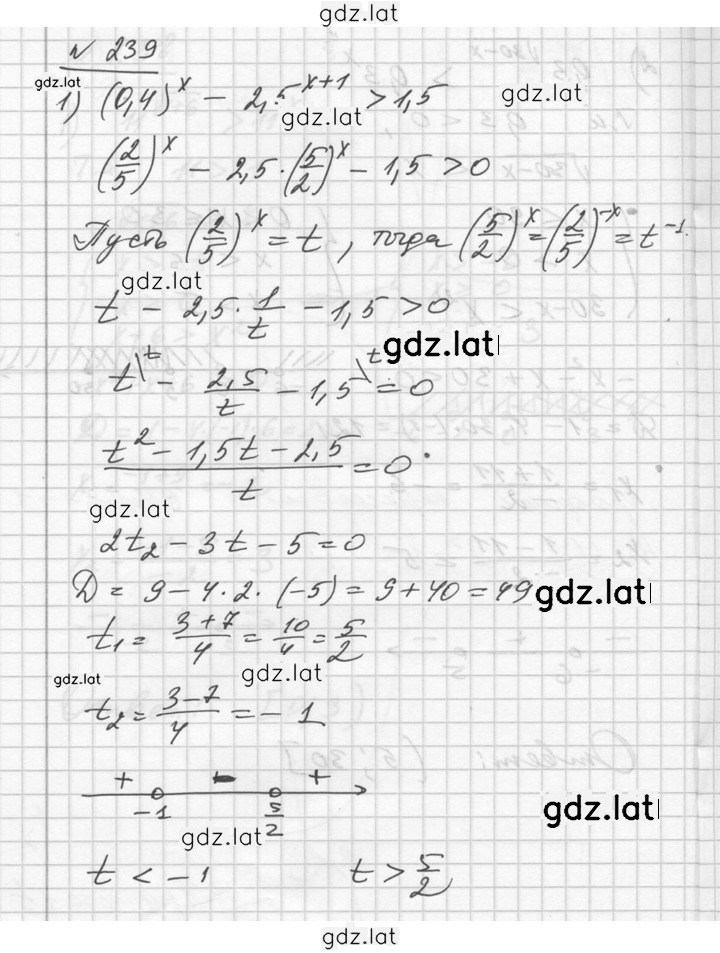 gdz.lat
№ 239
gdz.lat
1) (0,4)^x − 2,5^{x+1} > 1,5
gdz.lat
gdz.lat
(2/5)^x − 2,5 · (5/2)^x − 1,5 > 0
Пусть (2/5)^x = t, тогда (5/2)^x = (2/5)^{-x} = t^{-1}.
gdz.lat
t − 2,5 · 1/t − 1,5 > 0
gdz.lat
t\t − 2,5/t − 1,5\t = 0
(t² − 1,5t − 2,5)/t = 0
gdz.lat
2t₂ − 3t − 5 = 0
D = 9 − 4 · 2 · (−5) = 9 + 40 = 49
gdz.lat
t₁ = (3+7)/4 = 10/4 = 5/2
gdz.lat
gdz.lat
t₂ = (3−7)/4 = −1
+ − +
−1 5/2
gdz.lat
gdz.lat
t < −1 t > 5/2
gdz.lat